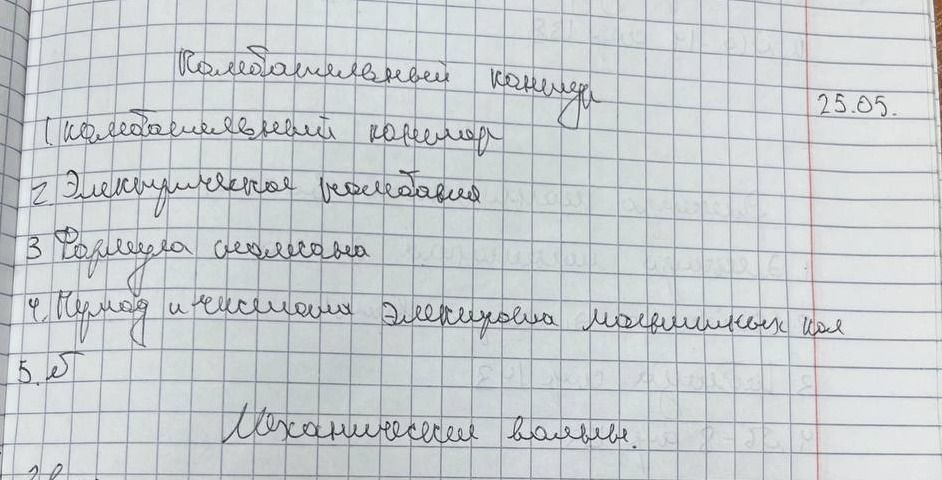 Колебательный контур
25.05.
1 колебательный контур
2 Электрические колебания
3 Формула
4. Период и частота Электромагнитных кол
5. б
Механические волны.